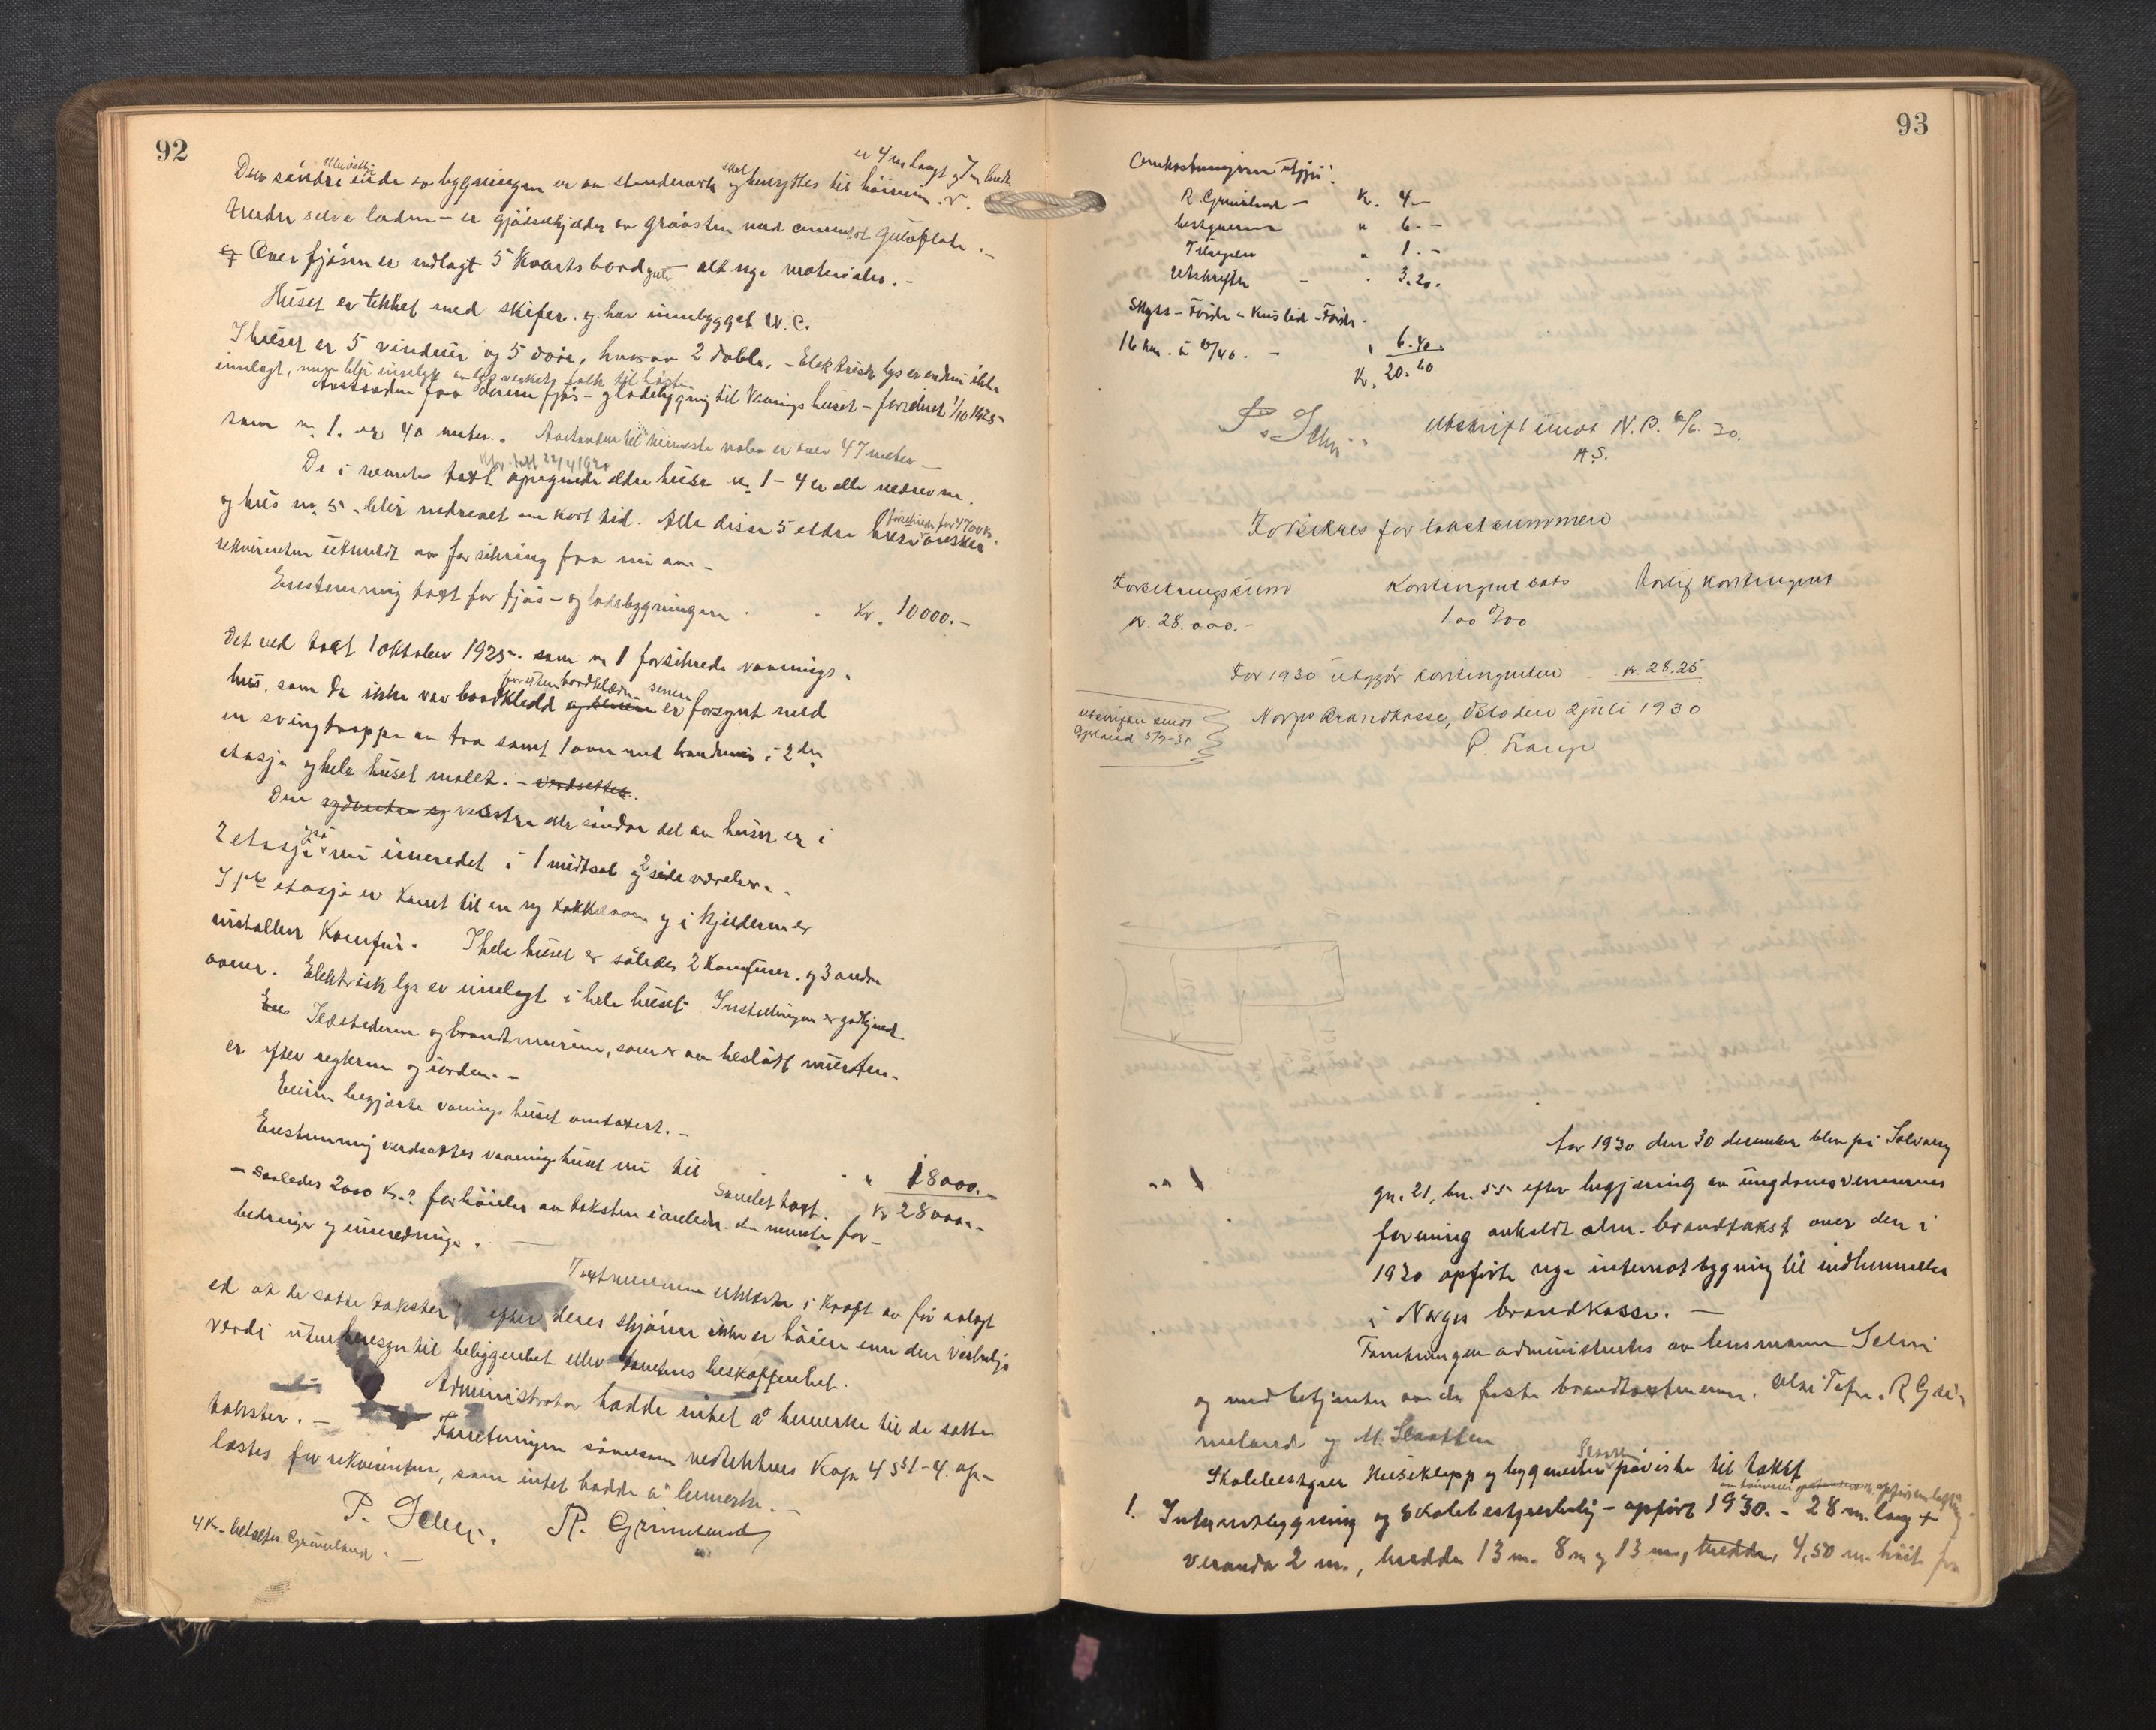 92
er 4 m langt 7 m bredt
Den søndre ende av bygningen er av stenderverk skal og benyttes til høirum.
under selve laden - er gjødselkjelder av graasten med cementert gulvplate. -
og Over fjøsen er indlagt 5 kvarts bordgulv alt nye materialer. -
Huset er tekket med skifer. og har innebygget W.C.
I huset er 5 vinduer og 5 døre, hvorav 2 doble, - Elektrisk lys er endnu ikke
innlagt, men blir innlagt av lysverkets folk til høsten
Avstanden fra denne fjøs- og ladebygning til vaanings huset - forsikret 1/10 1925
som nr. 1. er 40 meter. Avstanden til nærmeste nabo er over 47 meter -
22/4 1920
De i nevnte takst opregnede eldre huse nr. 1 - 4 er alle nedrevne.
og hus nr. 5 - blir nedrevet om kort tid. Alle disse 5 eldre huse forsikrede for 4700 kr. ønsker
rekvirenten utmeldt av forsikring fra nu av. -
Enstemmig takst for fjøs- og ladebygningen . . Kr. 10000.-
Det ved takst 1 oktober 1925. som nr 1 forsikrede vaanings.
hus, som da ikke var bordkledd foruten bordklædn. senere er forsynt med
en svingtrappe av tre samt 1 ovn ved brandmur i 2den
etasje og hele huset malet. - verdsettes.
Den vestre eller søndre del av huset er i
2 etasje også nu innredet i 1 midtsal og 2 side værelser. -
I 1ste etasje er kommet til en ny kakkelovn og i kjelderen er
installert Komfur. I hele huset er således 2 komfurer. og 3 andre
ovner. Elektrisk lys er innlagt i hele huset. Installasjonen er godkjent
Ildstederne og brandmurene, som er av beslått mursten.
er efter reglerne og i orden. -
Eieren begjærte vanings huset omtaxert. -
Enstemmig verdsattes vaaningshuset nu til . . " 18000.-
Samlet takst. Kr 28000.-
- Saaledes 2000 Kr.s forhøielse av taksten i anledn. den nevnte for-
bedringer og innredninge. -
Taxtmennene erklærte i kraft av før avlagt
ed at de satte takster efter deres skjønn ikke er høiere enn den virkelige
verdi uten hensyn til beliggenhet eller tomtens beskaffenhet.
Administrator hadde intet å bemerke til de satte
takster. - Forretningen såvelsom vedtektenes Kap 4 § 1-4. op-
læstes for rekvirenten, som intet hadde å bemerke. -
P. Selni. R. Grimeland
4 Kr. - betalt Grimeland. -
93
Omkostningerne utgjør:
R. Grimeland - Kr. 4 -
bestyreren " 6. -
Tilsynsm " 1. -
Utskriften - . 3.20.
Skyss - Førde - Kvislid - Førde.
16 km. à 0/40. - " 6.40.
Kr. 20.60
P. Selni. Utskrift sendt N.B. 6/6. 30.
A.S.
Forsikres for takstsummen
Forsikringssum Kontingentsats Aarlig kontingent
kr. 28.000.- 1.00 ‰
For 1930 utgjør kontingenten kr. 28.25
utskriften sendt
Gjeland 5/9-31
Norges Brandkasse, Oslo den 2 juli 1930
P.
Aar 1930 den 30 desember blev på Solvang
gnr. 21, bnr. 55 efter begjæring av ungdomsvennernes
forening avholdt alm. brandtakst over den i
1930 opførte nye internatbygning til indlemmelse
i Norges brandkasse. -
Forretningen administrertes av lensmann Selni
og med betjenter av de faste brandtaxtmenn. R Gri-
meland og M.
Skolebestyrer Huseklepp og bygmester påviste til takst
1. Internatbygning og Skolebestyrerbolig - opført 1930. - 28 m. lang +
veranda 2 m., bredde 13 m. 8 m og 13 m, bredde, 4,50 m. høit fra